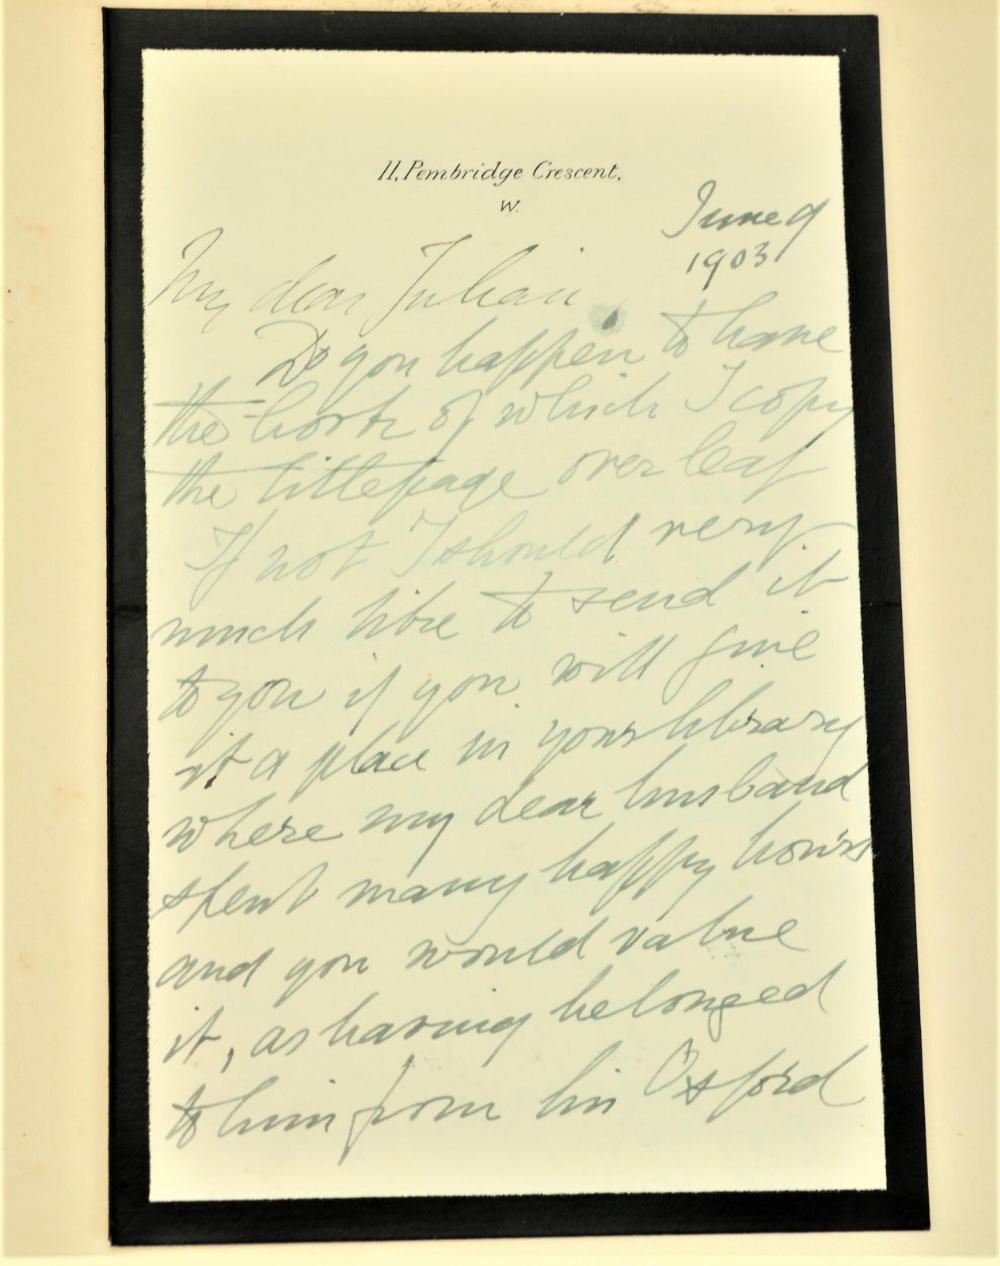 11, Pembridge Crescent,
W.
June 9
1903
My dear Julian
Do you happen to have
the book of which I copy
the titlepage over leaf
If not I should very
much like to send it
to you if you will give
it a place in your library
where my dear husband
spent many happy hours
and you would value
it, as having belonged
to him from his Oxford